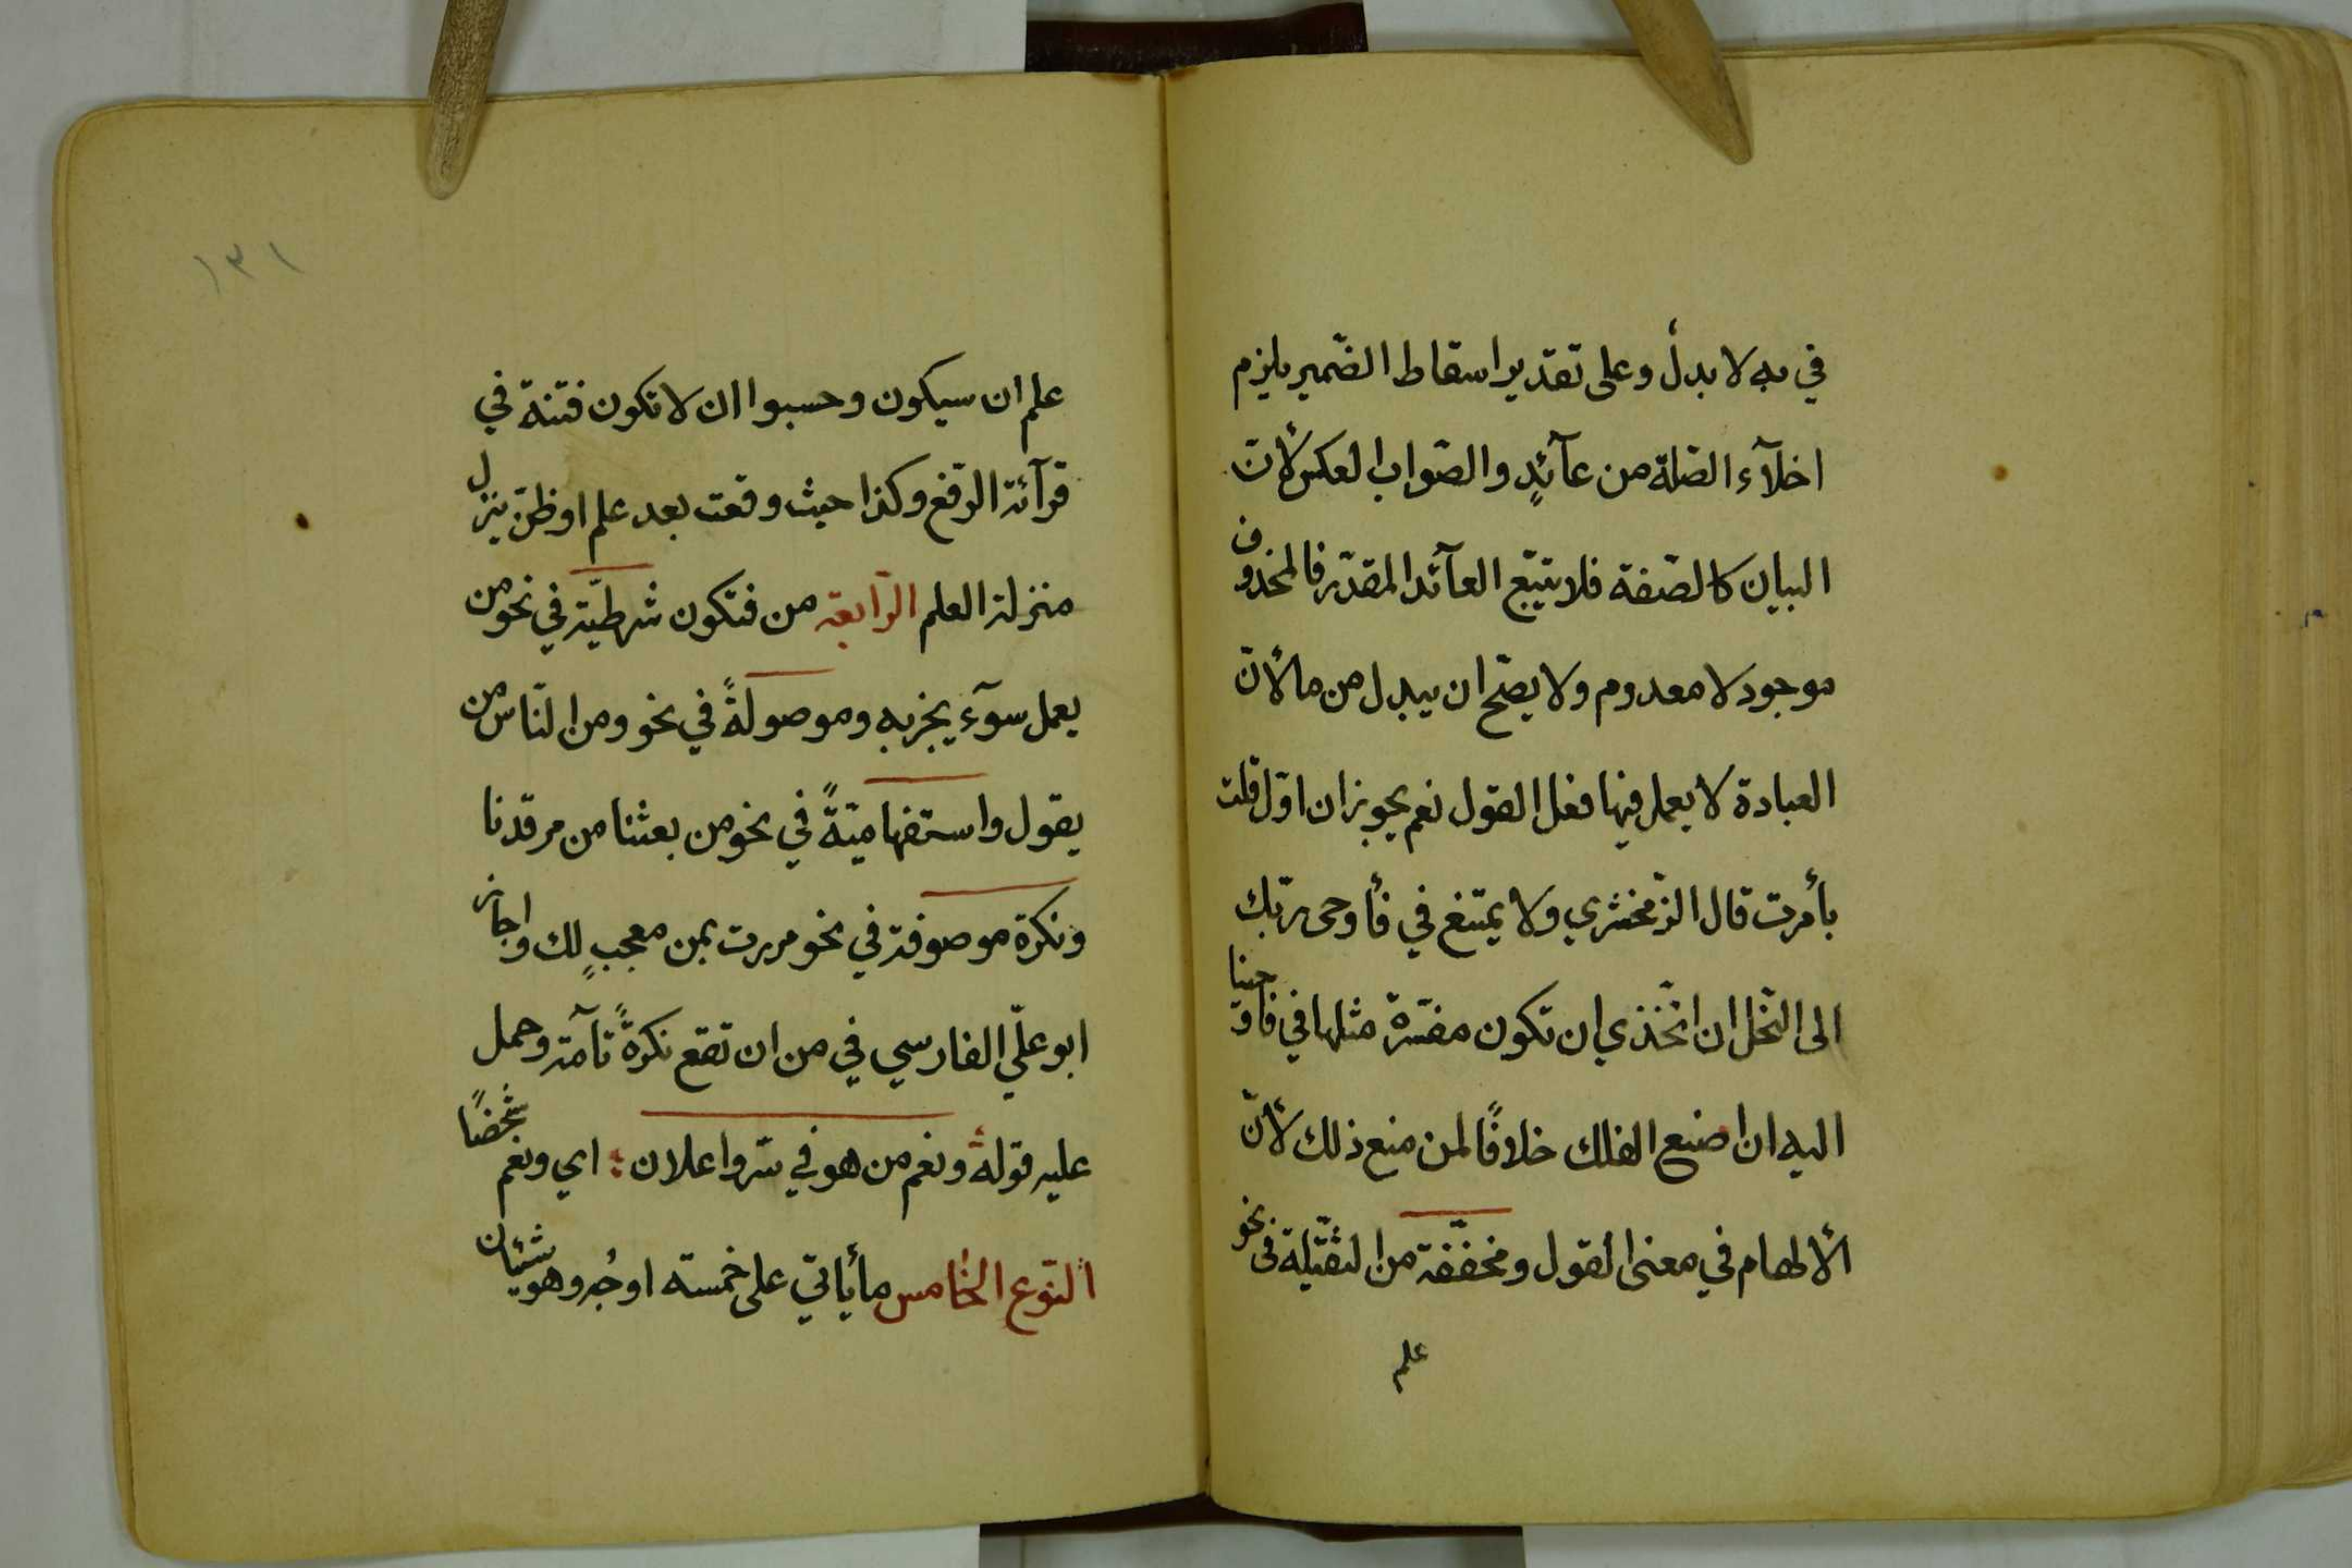 في به لا بدلٌ وعلى تقدير اسقاط الضّمير يلزم
اخلآء الصّلة من عآئدٍ والصّواب العكس لأنّ
البيان كالصّفة فلا يتبع العآئد المقدّر فالمحذوف
موجود لا معدوم ولا يصحّ ان يبدل من ما لأنّ
العبادة لا يعمل فيها فعل القول نعم يجوز ان اوّل قلت
بأمرت قال الزّمخشري ولا يمتنع في فأوحى ربّك
الى النّحل ان اتّخذي ان تكون مفسّرة مثلها في فاوحينا
اليه ان اصنع الفلك خلافًا لمن منع ذلك لأنّ
الألهام في معنى القول ومخفّفة من الثقيلة في نحو
علم
١٣١
علم ان سيكون وحسبوا ان لا تكون فتنة في
قرآئة الرّفع وكذا حيث وقعت بعد علم اوظنّ ينزل
منزلة العلم الرّابعة من فتكون شرطيّة في نحو من
يعمل سوآء يجز به وموصولةً في نحو ومن النّاس من
يقول واستفهاميّةً في نحو من بعثنا من مرقدنا
ونكرة موصوفة في نحو مررت بمن معجبٍ لك واجاز
ابو عليّ الفارسي في من ان تقع نكرةً تآمّة وحمل
عليه قوله ونعم من هو في سرّ واعلان ؛ اي ونعم شخصًا
النّوع الخامس ما يأتي على خمسة اوجُه وهو شيئان